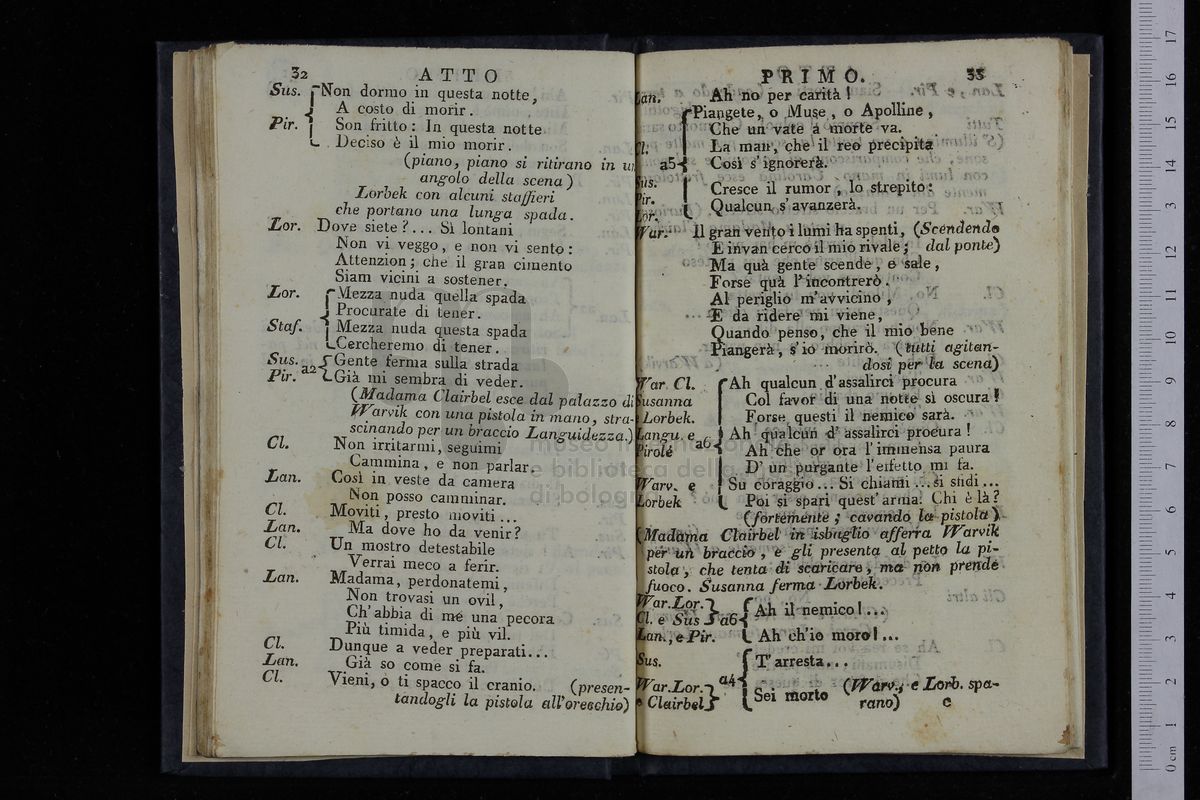 32 ATTO
Sus. Non dormo in questa notte,
A costo di morir.
Pir. Son fritto: In questa notte
Deciso è il mio morir.
(piano, piano si ritirano in un
angolo della scena)
Lorbek con alcuni staffieri
che portano una lunga spada.
Lor. Dove siete?... Sì lontani
Non vi veggo, e non vi sento:
Attenzion; che il gran cimento
Siam vicini a sostener.
Lor. Mezza nuda quella spada
Procurate di tener.
Staf. Mezza nuda questa spada
Cercheremo di tener.
Sus. a2 Gente ferma sulla strada
Pir. Già mi sembra di veder.
(Madama Clairbel esce dal palazzo di
Warvik con una pistola in mano, stra-
scinando per un braccio Languidezza.)
Cl. Non irritarmi, seguimi
Cammina, e non parlar.
Lan. Così in veste da camera
Non posso camminar.
Cl. Moviti, presto moviti...
Lan. Ma dove ho da venir?
Cl. Un mostro detestabile
Verrai meco a ferir.
Lan. Madama, perdonatemi,
Non trovasi un ovil,
Ch'abbia di me una pecora
Più timida, e più vil.
Cl. Dunque a veder preparati...
Lan. Già so come si fa.
Cl. Vieni, o ti spacco il cranio. (presen-
tandogli la pistola all'orecchio)
PRIMO. 33
Lan. Ah no per carità!
Piangete, o Muse, o Apolline,
Che un vate a morte va.
Cl. La man, che il reo precipita
a5 Così s'ignorerà.
Sus. Cresce il rumor, lo strepito:
Pir. Qualcun s'avanzerà.
Lor.
War. Il gran vento i lumi ha spenti, (Scendendo
E invan cerco il mio rivale; dal ponte)
Ma quà gente scende, e sale,
Forse quà l'incontrerò.
Al periglio m'avvicino,
E da ridere mi viene,
Quando penso, che il mio bene
Piangerà, s'io morirò. (tutti agitan-
dosi per la scena)
War Cl. Ah qualcun d'assalirci procura
Susanna Col favor di una notte sì oscura!
e Lorbek. Forse questi il nemico sarà.
Langu. e a6 Ah qualcun d'assalirci procura!
Pirolé Ah che or ora l'immensa paura
D'un purgante l'effetto mi fa.
Warv. e Su coraggio... Si chiami... si sfidi...
Lorbek Poi si spari quest'arma! Chi è là?
(fortemente; cavando la pistola)
(Madama Clairbel in isbaglio afferra Warvik
per un braccio, e gli presenta al petto la pi-
stola, che tenta di scaricare, ma non prende
fuoco. Susanna ferma Lorbek.
War. Lor.
Cl. e Sus a6 Ah il nemico!...
Lan., e Pir. Ah ch'io moro!...
Sus. T'arresta...
War. Lor. a4
e Clairbel Sei morto (Warv., e Lorb. spa-
rano) c
museo internazionale
e biblioteca della
di bologna
0 cm 1 2 3 4 5 6 7 8 9 10 11 12 13 14 15 16 17